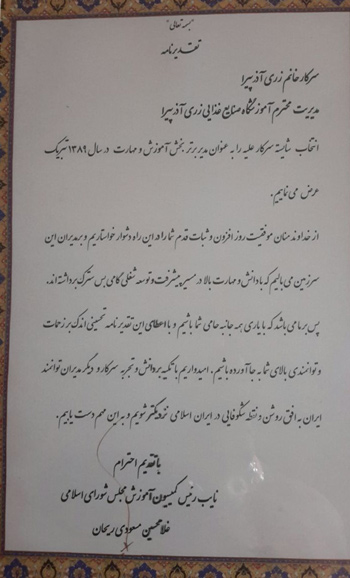 "بسمه تعالی"
تقدیرنامه
سرکار خانم زری آذرپیرا
مدیریت محترم آموزشگاه صنایع غذایی زری آذرپیرا
انتخاب شایسته سرکار علیه را به عنوان مدیر برتر بخش آموزش و مهارت در سال ۱۳۸۹ تبریک
عرض می نماییم.
از خداوند منان موفقیت روز افزون و ثبات قدم شما را در این راه دشوار خواستاریم و بر مدیران این
سرزمین می بالیم که با دانش و مهارت بالا در مسیر پیشرفت و توسعه شغلی گامی بس سترگ برداشته اند.
پس بر ما می باشد که با یاری همه جانبه حامی شما باشیم و با اعطای این تقدیرنامه تحسینی اندک بر زحمات
و توانمندی بالای شما به جا آورده باشیم. امیدواریم با تکیه بر دانش و تجربه سرکار و دیگر مدیران توانمند
ایران به افق روشن و نقطه شکوفایی در ایران اسلامی نزدیکتر شویم و به این مهم دست یابیم.
با تقدیم احترام
نایب رئیس کمیسیون آموزش مجلس شورای اسلامی
غلامحسین مسعودی ریحان